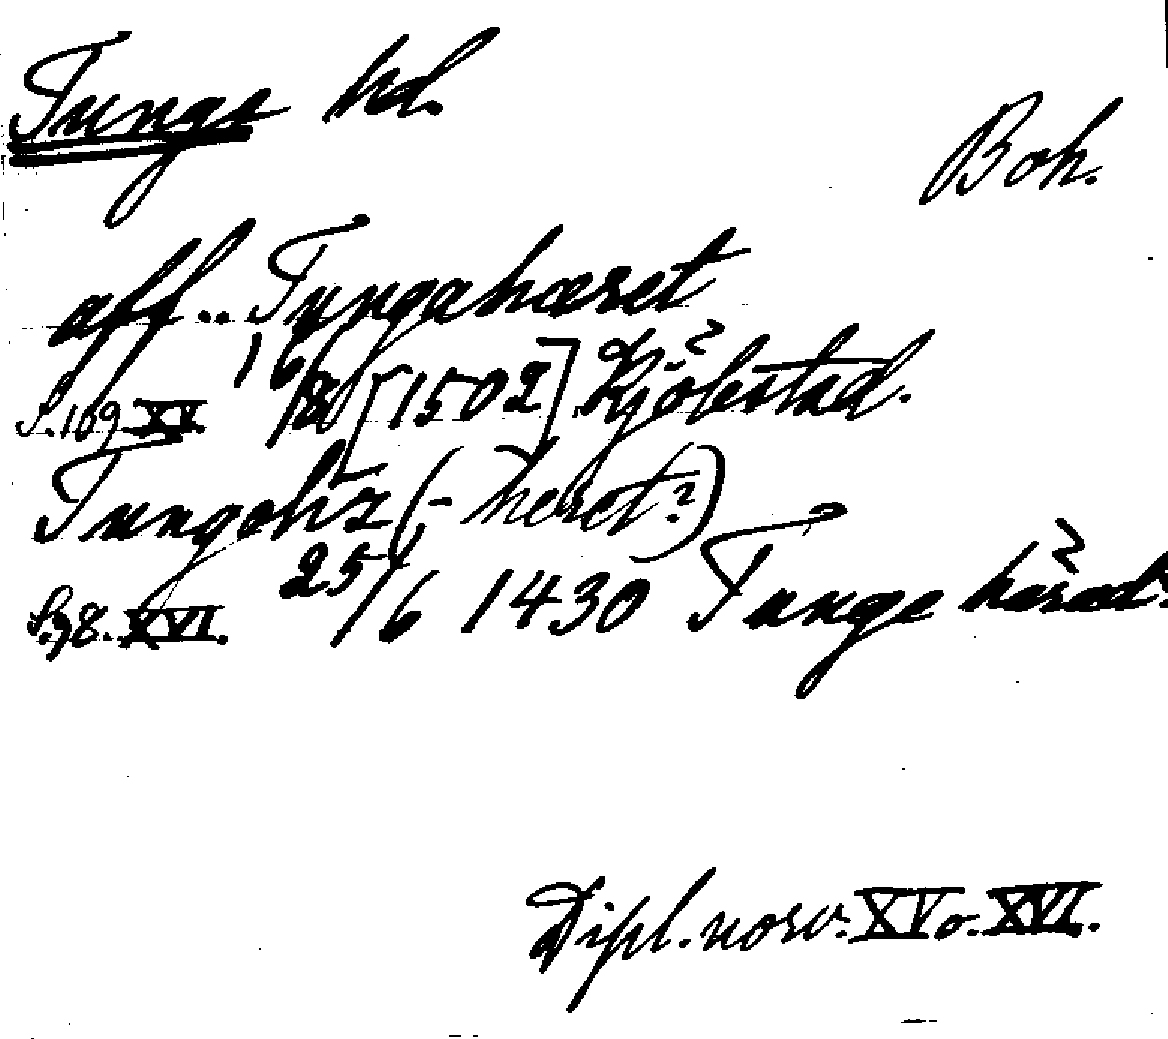 Tunge hd.
Boh.
aff .. Tungahæret
S. 169 XV. 16/8 [1502] Kjöbstad.
Tungohr (-heret?)
S. 98. XVI. 25/6 1430 Tunge härad.
Dipl. norv. XV o. XVI.